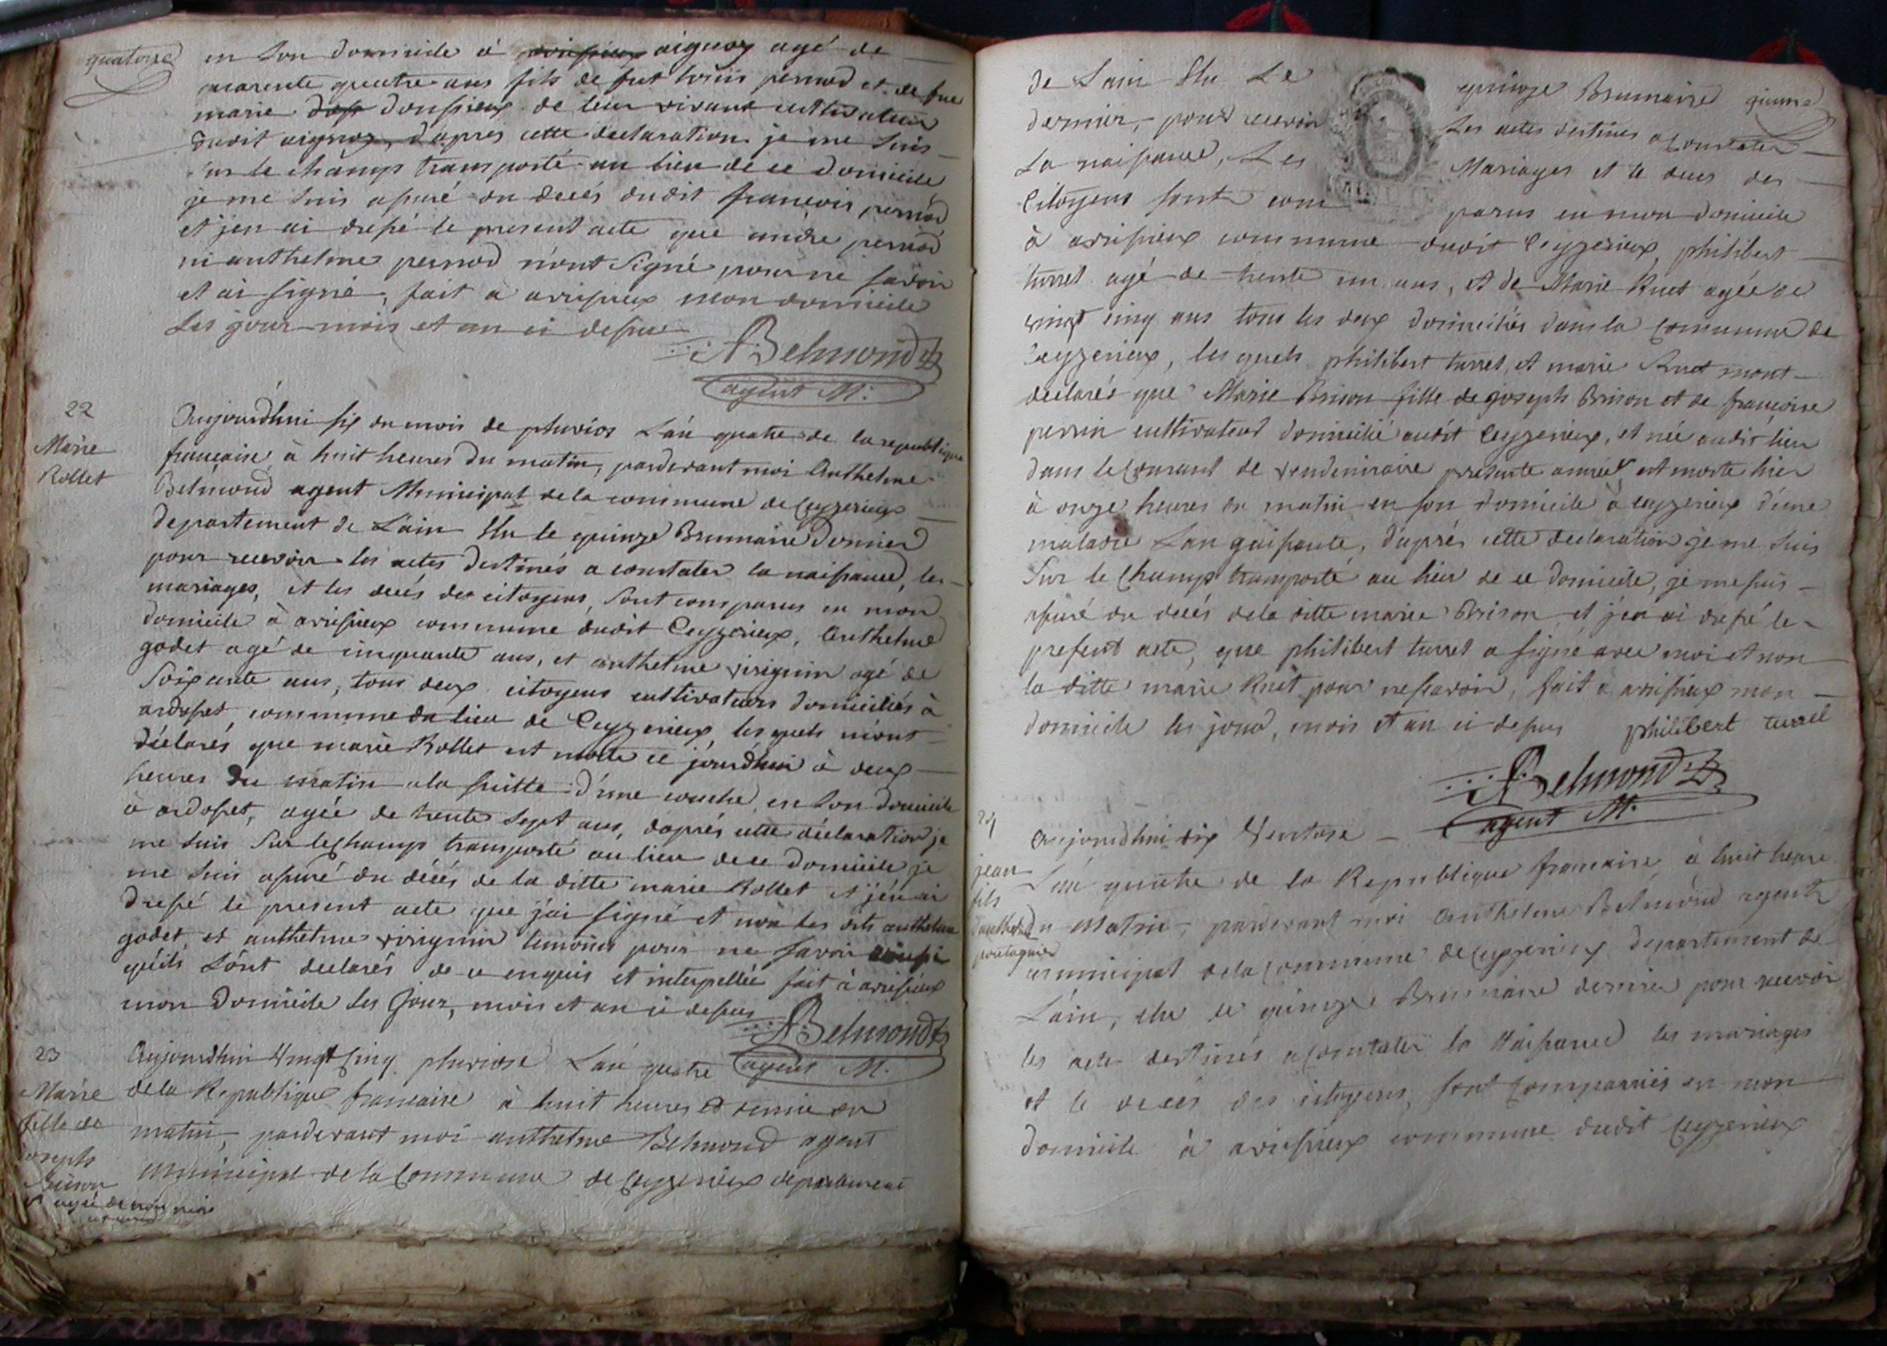 quatorze
en son domicile à aignoz agé de
quarente quatre ans fils de fut louis pernod et de fue
marie donsieux de leur vivant cultivateur
dudit aignoz, d'apres cette declaration je me suis
sur le champs transporté au lieu de ce domicile
je me suis asuré du decés dudit françois pernod
et jen ai dressé le present acte que andre pernod
ni anthelme pernod n'ont signé pour ne savoir
et ai signé, fait à avrissieux mon domicile
les jour mois et an ci dessus
ABelmond
agent M.
22
Marie
Rollet
Aujourdhui six du mois de pluvios L'an quatre de la republique
francaise à huit heures du matin, pardevant moi Anthelme
Belmond agent Municipal de la commune de Ceyzerieux
departement de L'ain Elu le quinze Brumaire dernier
pour recevoir les actes destinés a constater la naissance, les
mariages, et les decés des citoyens, sont comparus en mon
domicile à avrissieux commune dudit Ceyzerieux, Anthelme
godet agé de cinquante ans, et anthelme virignin agé de
soixante ans, tous deux citoyens cultivateurs domiciliés à
ardosset, commune du lieu de Ceyzerieux les quels m'ont
déclarés que marie Rollet est morte ce jourdhui à deux
heures du matin a la suitte d'une couche en son domicile
à ardosset, agée de trente sept ans, daprés cette déclaration je
me suis sur le champs transporté au lieu de ce domicile je
me suis asuré du décés de la ditte marie Rollet et j'en ai
dressé le present acte que j'ai signé et non les dits anthelme
godet, et anthelme virignin temoins pour ne savoir ainsi
qu'ils s'ont declarés de ce enquis et interpellée fait à avrissieux
mon domicile les jour, mois et an ci dessus
ABelmond
agent M.
23
Marie
fille de
joseph
Brison
agée de
Aujourdhui vingt cinq pluviose L'an quatre
de la Republique francaise à huit heures et demie du
matin, pardevant moi anthelme Belmond agent
municipal de la Commune de Ceyzerieux departement
de L'ain Elu Le quinze Brumaire
dernier, pour recevoir Les actes destinés a Constater
La naissance, Les Mariages et le deces des
Citoyens sont comparus en mon domicile
à avrissieux commune dudit Ceyzerieux, philibert
turrel agé de trente un ans, et de Marie Ruet agée de
vingt cinq ans tous les deux domiciliés dans la commune de
Ceyzerieux, les quels philibert turrel, et marie Ruet mont
declarés que Marie Brison fille de joseph Brison et de francoise
perrin cultivateur domicilié audit Ceyzerieux, et née audit lieu
dans le Courant de vendemiaire presente année, est morte hier
à onze heures du matin en son domicile à ceyzerieux d'une
maladie Languissante, daprés cette declaration je me suis
sur le champs transporté au lieu de ce domicile, je me suis
asuré du decés de la ditte marie Brison et j'en ai dressé le
present acte, que philibert turrel a signé avec moi et non
la ditte marie Ruet pour ne savoir, fait à avrissieux mon
domicile les jour, mois et an ci dessus philibert turrel
ABelmond
agent M.
24
jean
fils
Aujourdhui dix Ventose
L'an quatre de la Republique francaise, à huit heure
du Matin, pardevant moi Anthelme Belmond agent
municipal de la Commune de Ceyzerieux departement de
L'ain, elu le quinze Brumaire dernier pour recevoir
les actes destinés a constater la Naissance les mariages
et le decés des citoyens, sont comparus en mon
domicile à avrissieux commune dudit Ceyzerieux